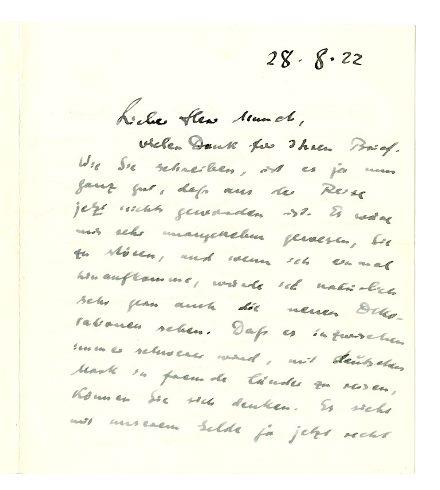 28.8.22
Lieber Herr Munch,
vielen Dank für Ihren Brief.
Wie Sie schreiben, ist es ja nun
ganz gut, daß aus der Reise
jetzt nichts geworden ist. Es wäre
mir sehr unangenehm gewesen, Sie
zu stören, und wenn ich einmal
hinaufkomme, würde ich natürlich
sehr gern auch die neuen Deko-
rationen sehen. Daß es inzwischen
immer schwerer wird, mit deutschem
Mark in fremde Länder zu reisen,
können Sie sich denken. Es sieht
mit unserem Gelde ja jetzt recht